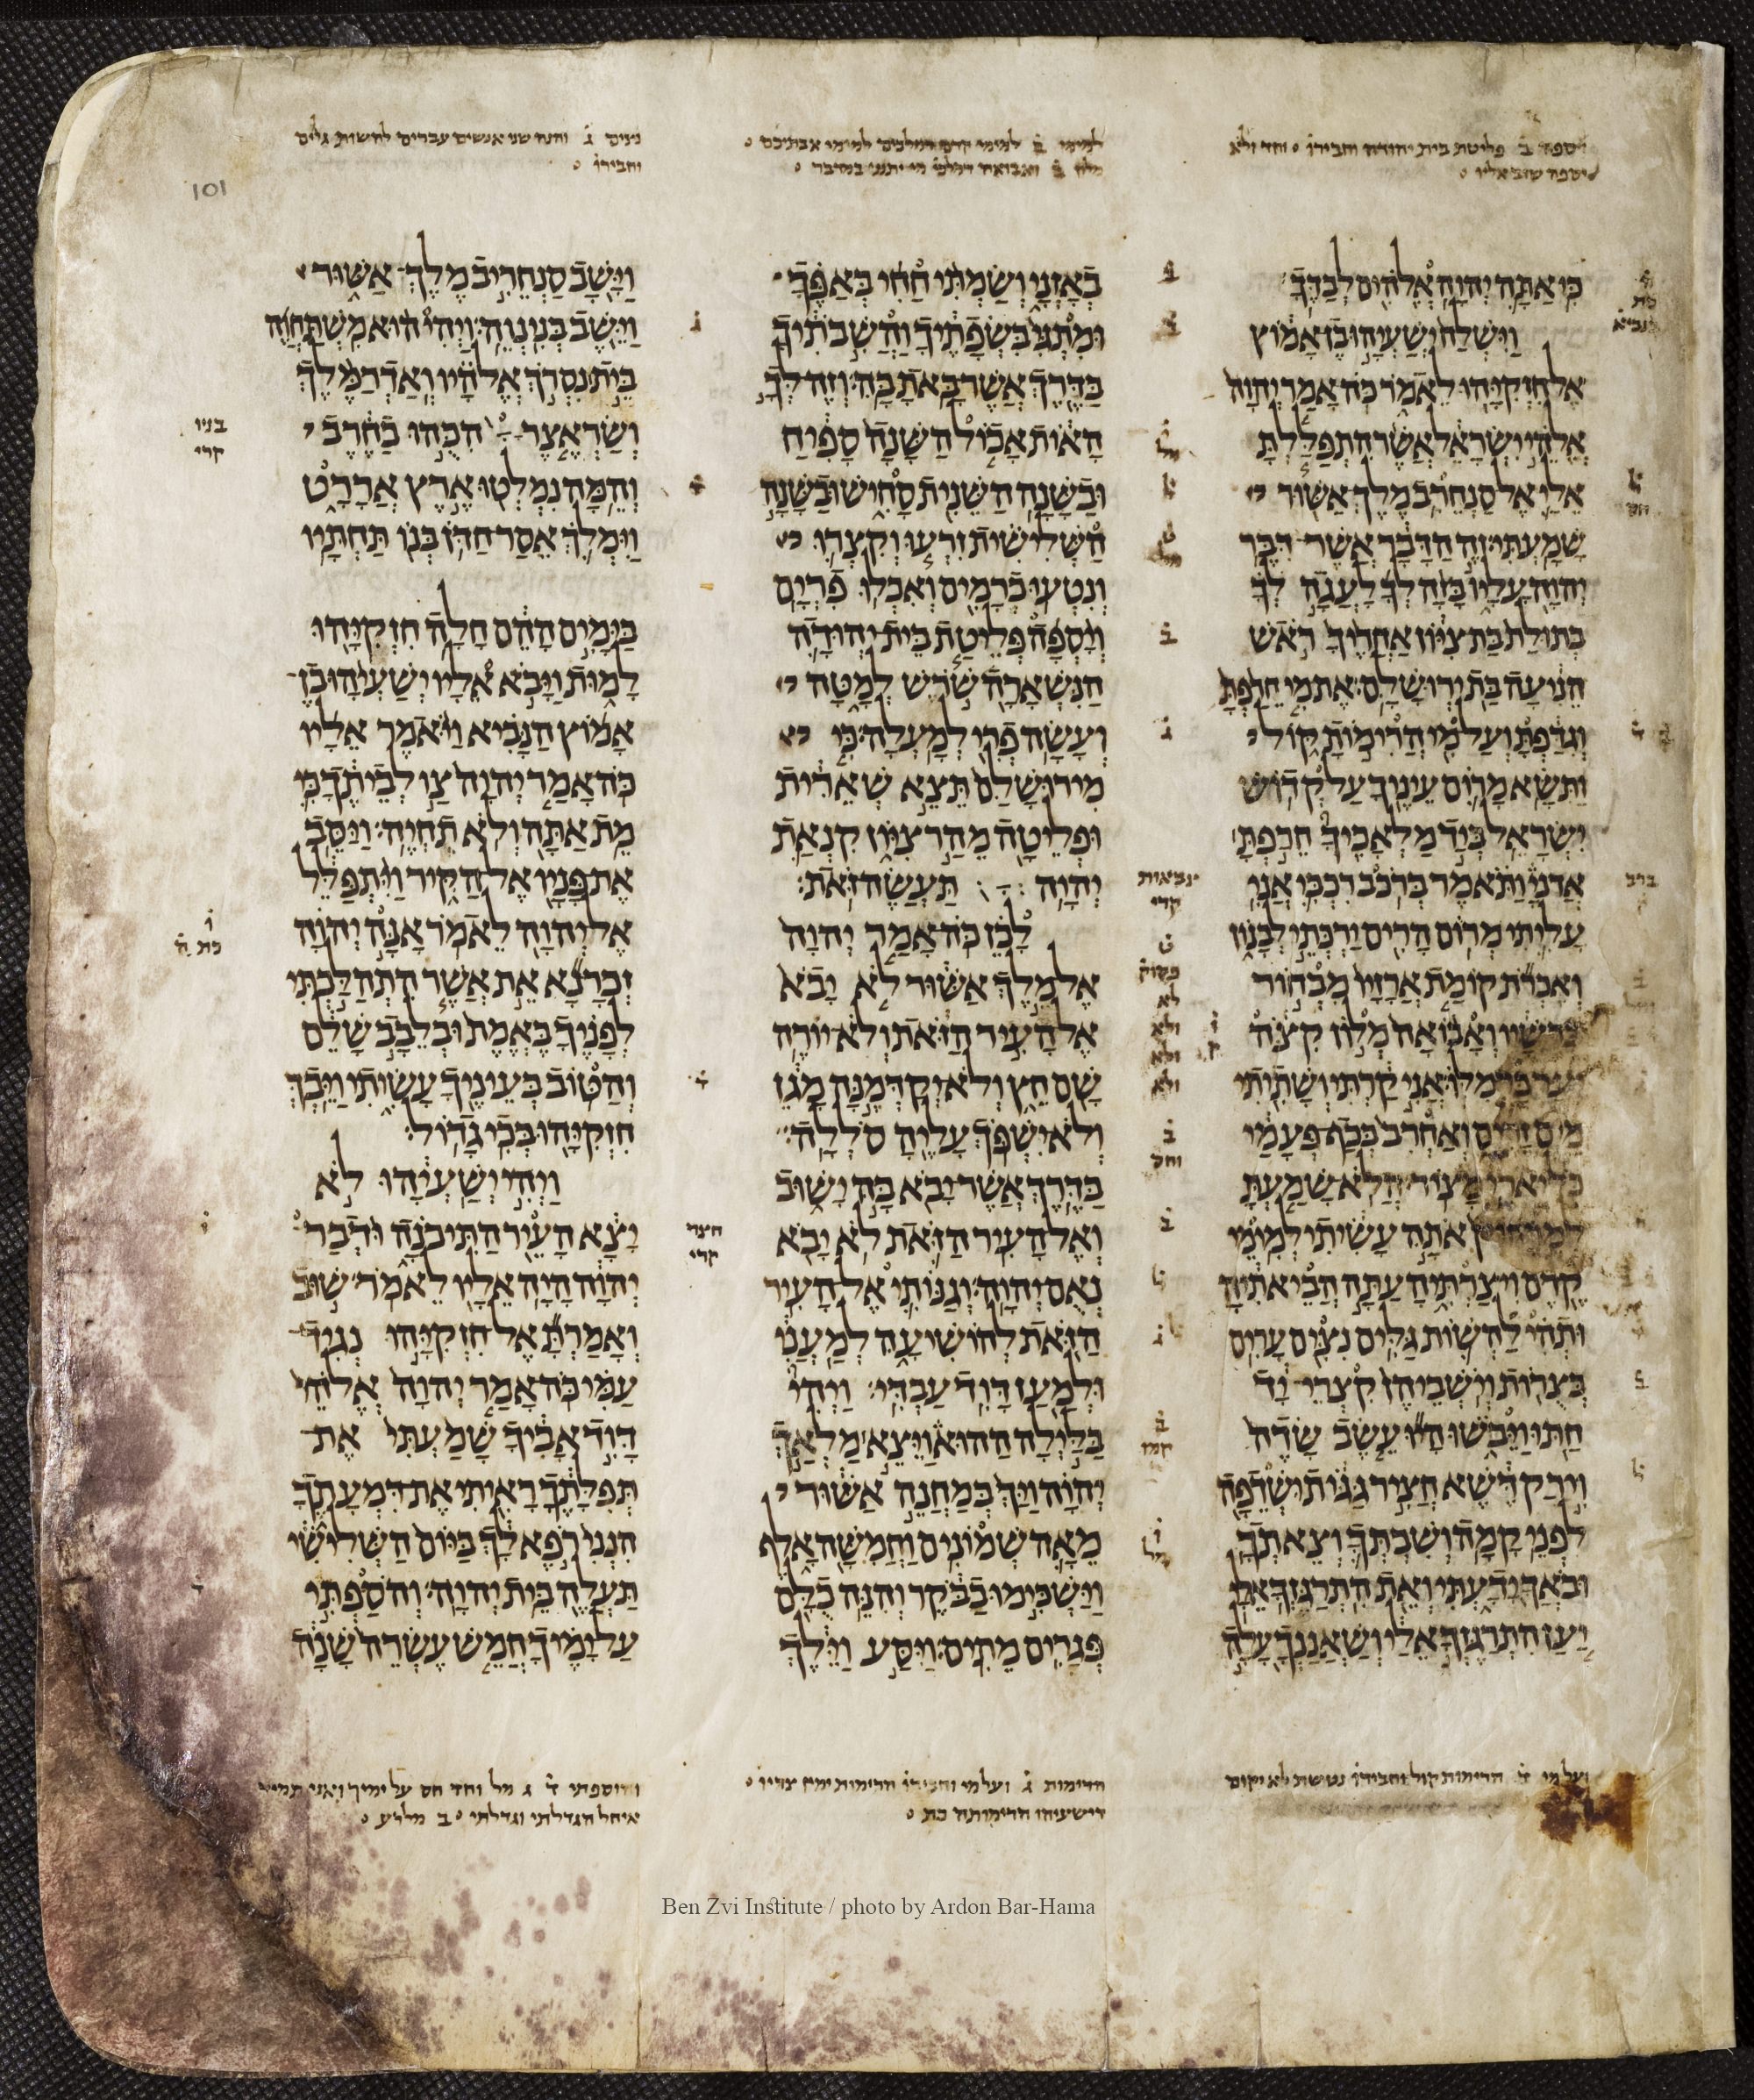 ויספה ב פליטת בית יהודה וחבירו וחד ולא
יספה שוב אליו
למימי ב למימי קדם דמלכים למימי אבתיכם
מלון ב ואבואה דמלכ מי יתנני במדבר
נצים ג והנה שני אנשים עברים להשות גלים
וחבירו
101
כי אתה יהוה אלהים לבדך
וישלח ישעיהו בן אמוץ
אל חזקיהו לאמר כה אמר יהוה
אלהי ישראל אשר התפללת
אלי אל סנחרב מלך אשור
שמעתי׃ זה הדבר אשר דבר
יהוה עליו בזה לך לעגה לך
בתולת בת ציון אחריך ראש
הניעה בת ירושלם׃ את מי חרפת
וגדפת ועל מי הרימות קול
ותשא מרום עיניך על קדוש
ישראל׃ ביד מלאכיך חרפת
אדני ותאמר ברכב רכבי אני
עליתי מרום הרים ירכתי לבנון
ואכרת קומת ארזיו מבחור
ברשיו ואבואה מלון קצה
יער כרמלו׃ אני קרתי ושתיתי
מים זרים ואחרב בכף פעמי
כל יארי מצור׃ הלא שמעת
למרחוק אתה עשיתי למימי
קדם ויצרתיה עתה הביאתיה
ותהי להשות גלים נצים ערים
בצרות׃ וישביהן קצרי יד
חתו ויבשו היו עשב שדה
וירק דשא חציר גגות ושדפה
לפני קמה׃ ושבתך וצאתך
ובאך ידעתי ואת התרגזך אלי׃
יען התרגזך אלי ושאננך עלה
באזני ושמתי חחי באפך
ומתגי בשפתיך והשבתיך
בדרך אשר באת בה׃ וזה לך
האות אכול השנה ספיח
ובשנה השנית סחיש ובשנה
השלישית זרעו וקצרו
ונטעו כרמים ואכלו פרים׃
ויספה פליטת בית יהודה
הנשארה שרש למטה
ועשה פרי למעלה׃ כי
מירושלם תצא שארית
ופליטה מהר ציון קנאת
יהוה תעשה זאת׃
לכן כה אמר יהוה
אל מלך אשור לא יבא
אל העיר הזאת ולא יורה
שם חץ ולא יקדמנה מגן
ולא ישפך עליה סללה׃
בדרך אשר יבא בה ישוב
ואל העיר הזאת לא יבא
נאם יהוה׃ וגנותי אל העיר
הזאת להושיעה למעני
ולמען דוד עבדי׃ ויהי
בלילה ההוא ויצא מלאך
יהוה ויך במחנה אשור
מאה שמונים וחמשה אלף
וישכימו בבקר והנה כלם
פגרים מתים׃ ויסע וילך
וישב סנחריב מלך אשור
וישב בנינוה׃ ויהי הוא משתחוה
בית נסרך אלהיו ואדרמלך
ושראצר הכהו בחרב
והמה נמלטו ארץ אררט
וימלך אסר חדן בנו תחתיו׃
בימים ההם חלה חזקיהו
למות ויבא אליו ישעיהו בן
אמוץ הנביא ויאמר אליו
כה אמר יהוה צו לביתך כי
מת אתה ולא תחיה׃ ויסב
את פניו אל הקיר ויתפלל
אל יהוה לאמר׃ אנה יהוה
זכר נא את אשר התהלכתי
לפניך באמת ובלבב שלם
והטוב בעיניך עשיתי ויבך
חזקיהו בכי גדול׃
ויהי ישעיהו לא
יצא העיר התיכנה ודבר
יהוה היה אליו לאמר׃ שוב
ואמרת אל חזקיהו נגיד
עמי כה אמר יהוה אלהי
דוד אביך שמעתי את
תפלתך ראיתי את דמעתך
הנני רפא לך ביום השלישי
תעלה בית יהוה׃ והספתי
על ימיך חמש עשרה שנה
צבאות
קרי
חצר
קרי
בניו
קרי
ועל מי ד הרימות קול וחבירו נטשת לא יקום
הרימות ג ועל מי וחבירו הרימות ימין צריו
דישעיהו הרימותה כת
והוספתי ד ג מל וחד חס על ימיך ואני תמיד
איחל הגדלתי וגדלתי ב מלרע
Ben Zvi Institute / photo by Ardon Bar-Hama